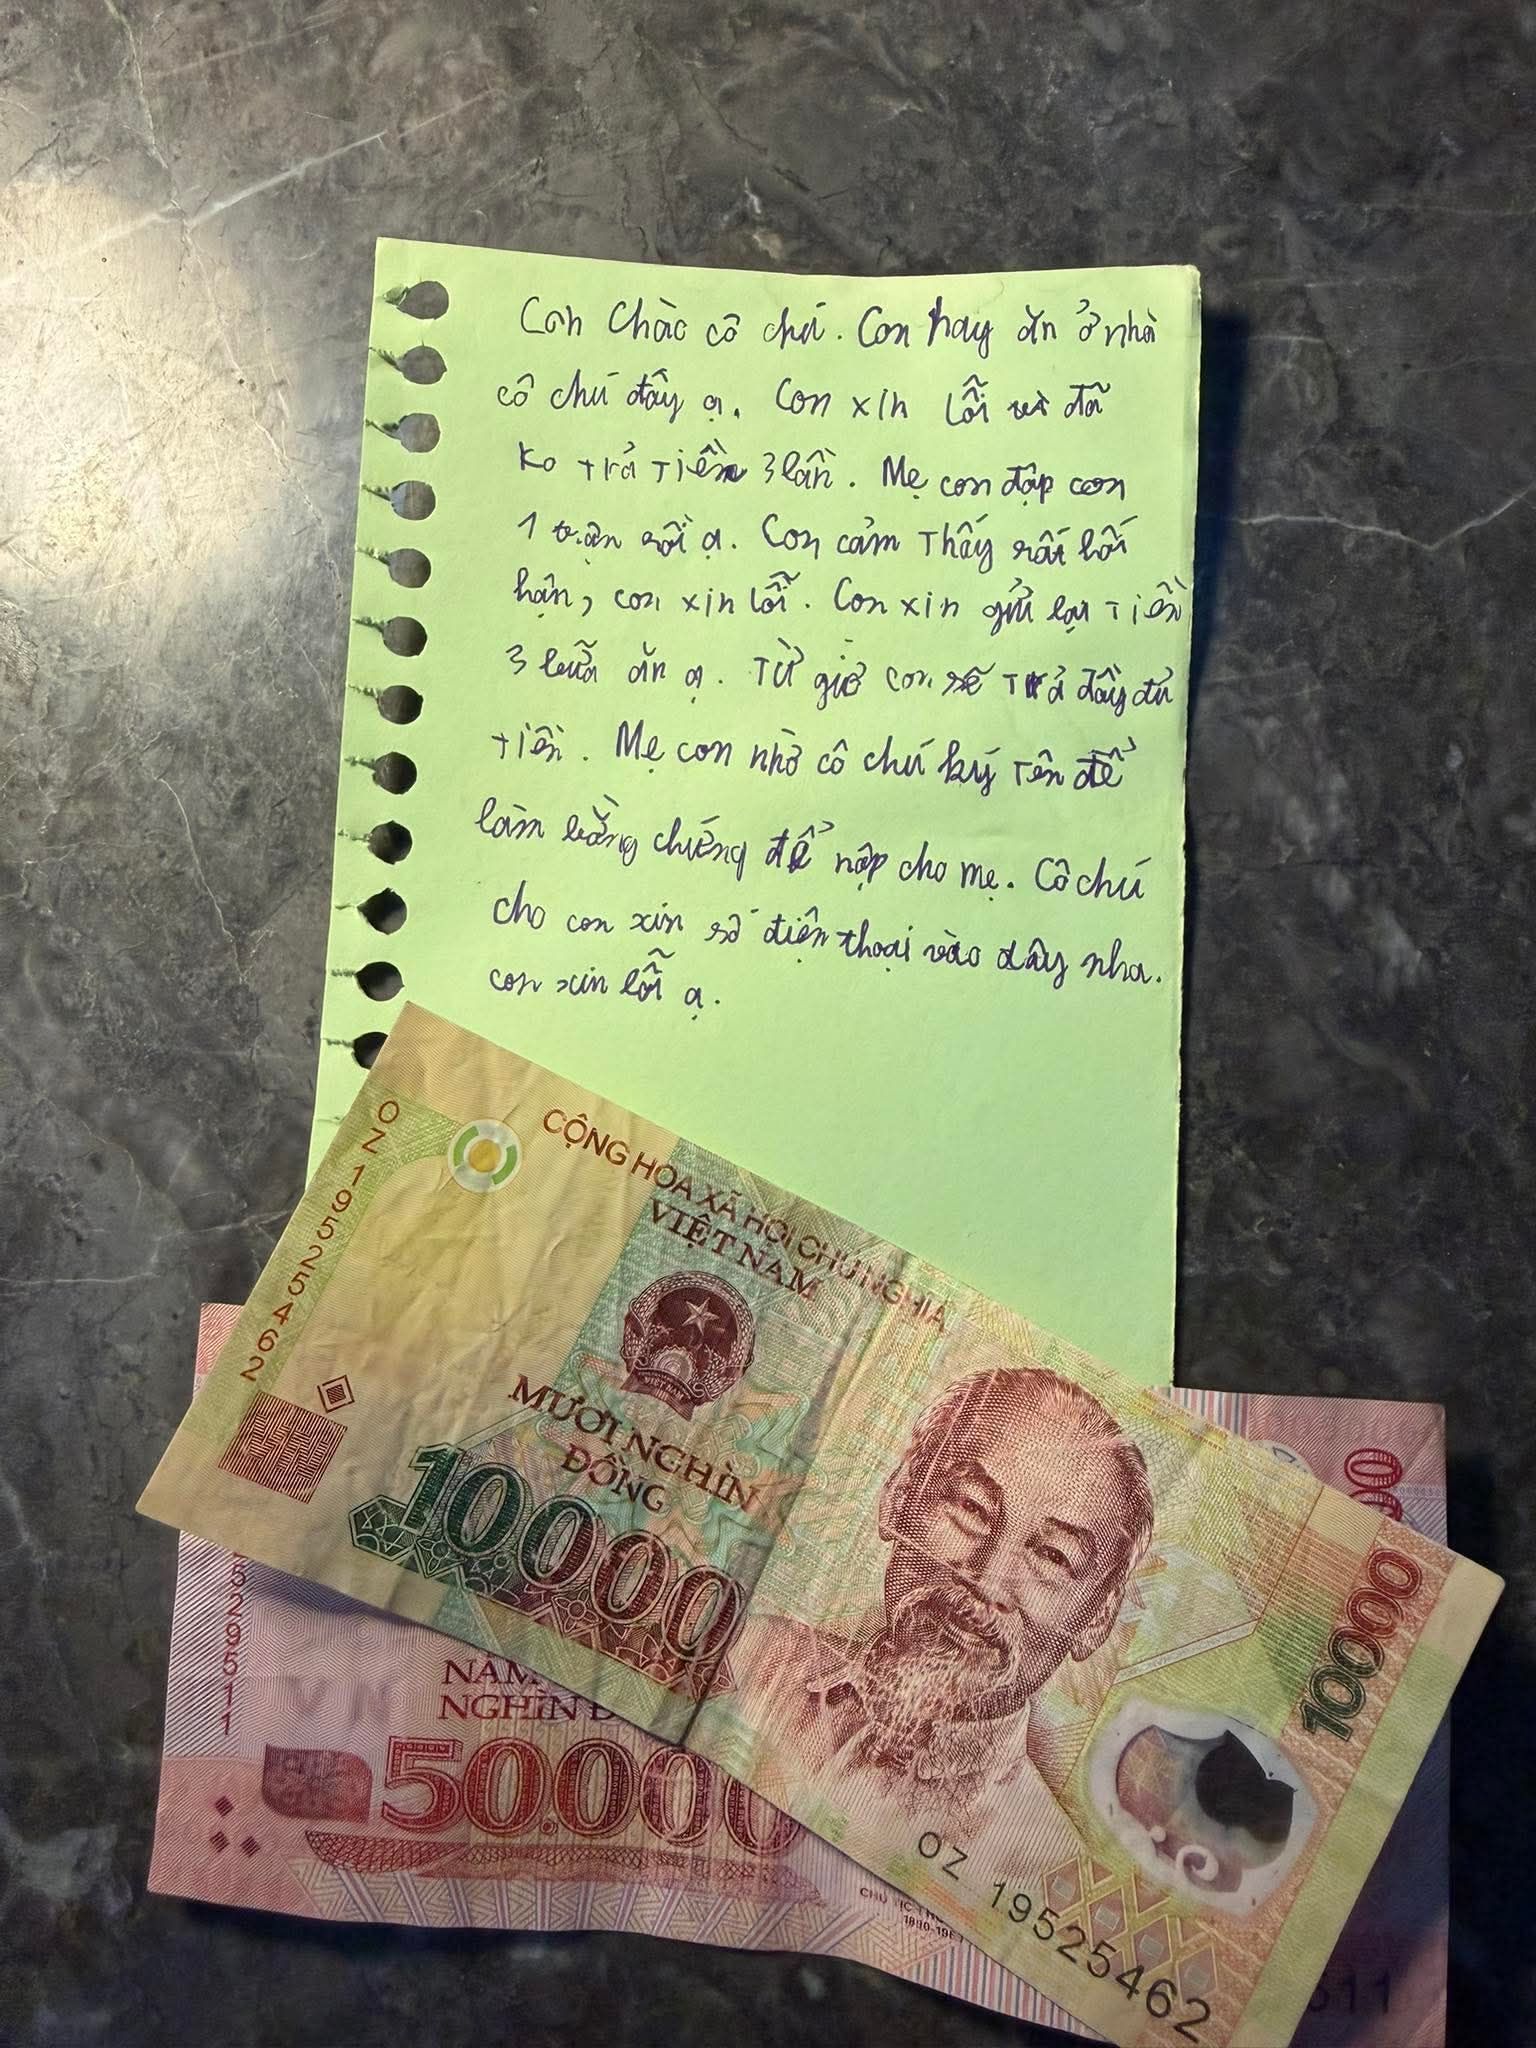 Con chào cô chú. Con hay ăn ở nhà
cô chú đây ạ. Con xin lỗi vì đã
ko trả tiền 3 lần. Mẹ con đập con
1 trận rồi ạ. Con cảm thấy rất hối
hận, con xin lỗi. Con xin gửi lại tiền
3 bữa ăn ạ. Từ giờ con sẽ trả đầy đủ
tiền. Mẹ con nhờ cô chú ký tên để
làm bằng chứng để nộp cho mẹ. Cô chú
cho con xin số điện thoại vào đây nha.
con xin lỗi ạ.
OZ 19525462
CỘNG HÒA XÃ HỘI CHỦ NGHĨA
VIỆT NAM
VIỆT NAM
MƯỜI NGHÌN
ĐỒNG
10000
10000
OZ 19525462
NĂM
NGHÌN Đ
VN
50.000
5629511
1890-19
511